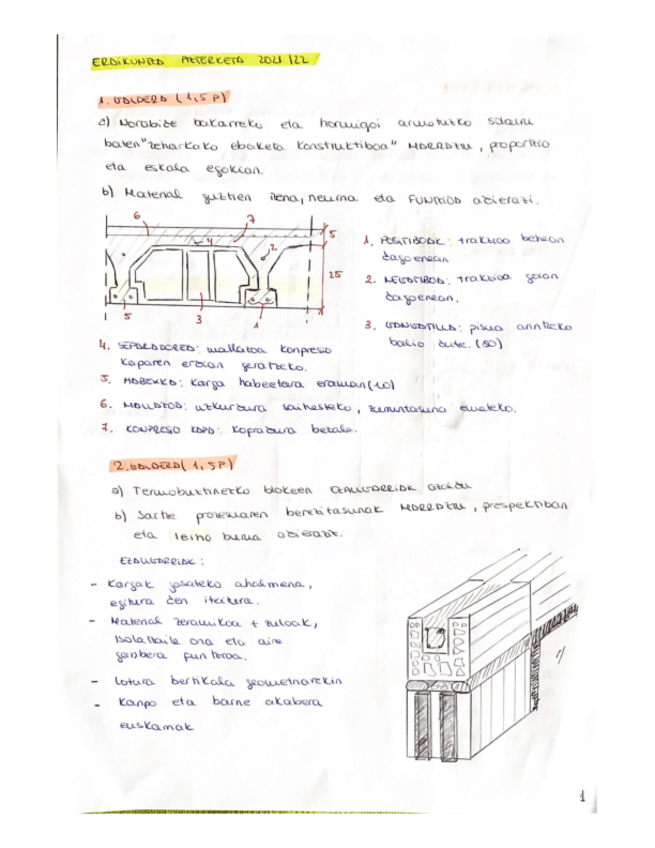 ERDIKUNTZA AZTERKETA 2021/22
1. GALDERA (1,5 P)
a) Norabide bakarreko eta hormigoi armatuzko solairu
baten "zeharkako ebaketa konstruktiboa" MARRAZTU, proportzio
eta eskala egokian.
b) Material guztien izena, neurria eta FUNTZIOA adierazi.
6
7
4
2
5
25
5
3
1
1. POSITIBOAK: trakzioa behean
dagoenean
2. NEGATIBOA: trakzioa goian
dagoenean.
3. GANGATILLA: pisua arintzeko
balio dute. (50)
4. SEPARADOREA: mallatoa konpresio
kaparen erdian geratzeko.
5. HABEXKA: karga habeetara eraman (10)
6. MALLAZOA: uzkurdura saihesteko, zurruntasuna emateko.
7. KONPRESIO KAPA: Kopradura betalo.
2. GALDERA (1,5P)
a) Termobuztinezko blokeen EZAUGARRIAK azaldu
b) Sartze prozesuaren berezitasunak MARRAZTU, prespektiban
eta leiho burua adierazi.
EZAUGARRIAK:
- Kargak jasateko ahalmena,
egitura den itxitura.
- Material zeramikoa + zuloak,
isolatzaile ona eta aire
ganbera funtzioa.
- Lotura bertikala geometriarekin
- Kanpo eta barne akabera
euskarriak
1